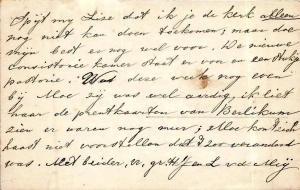 Spijt my Lize dat ik je de kerk alleen
nog niet kan doen toekomen, maar doe
mijn best er nog wel voor. De nieuwe
consistorie kamer staat er van en een stukje
pastorie. Was deze week nog even
bij Moe zij was wel aardig ik liet
haar de prentkaarten van Berlikum
zien er waren nog meer; Moe kon zich
haast niet voorstellen dat 't zoo veranderd
was. Met beider, v, gr. H J en L v d Meij